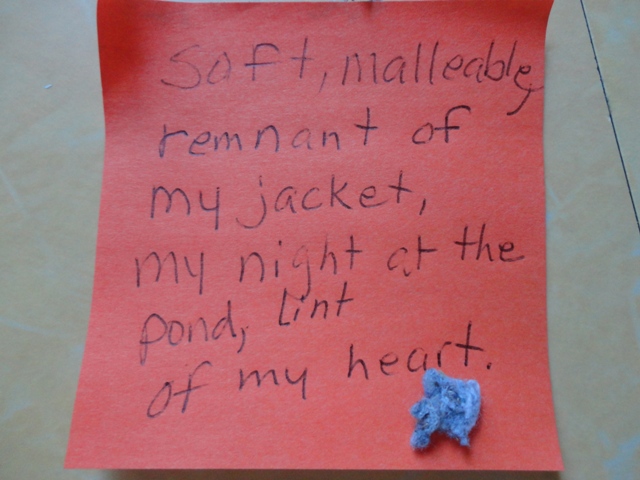 Soft, malleable,
remnant of
my jacket,
my night at the
pond, lint
of my heart.